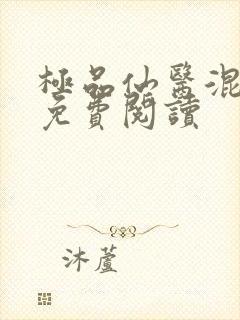 極品仙醫混
免費閱讀
沐蘆